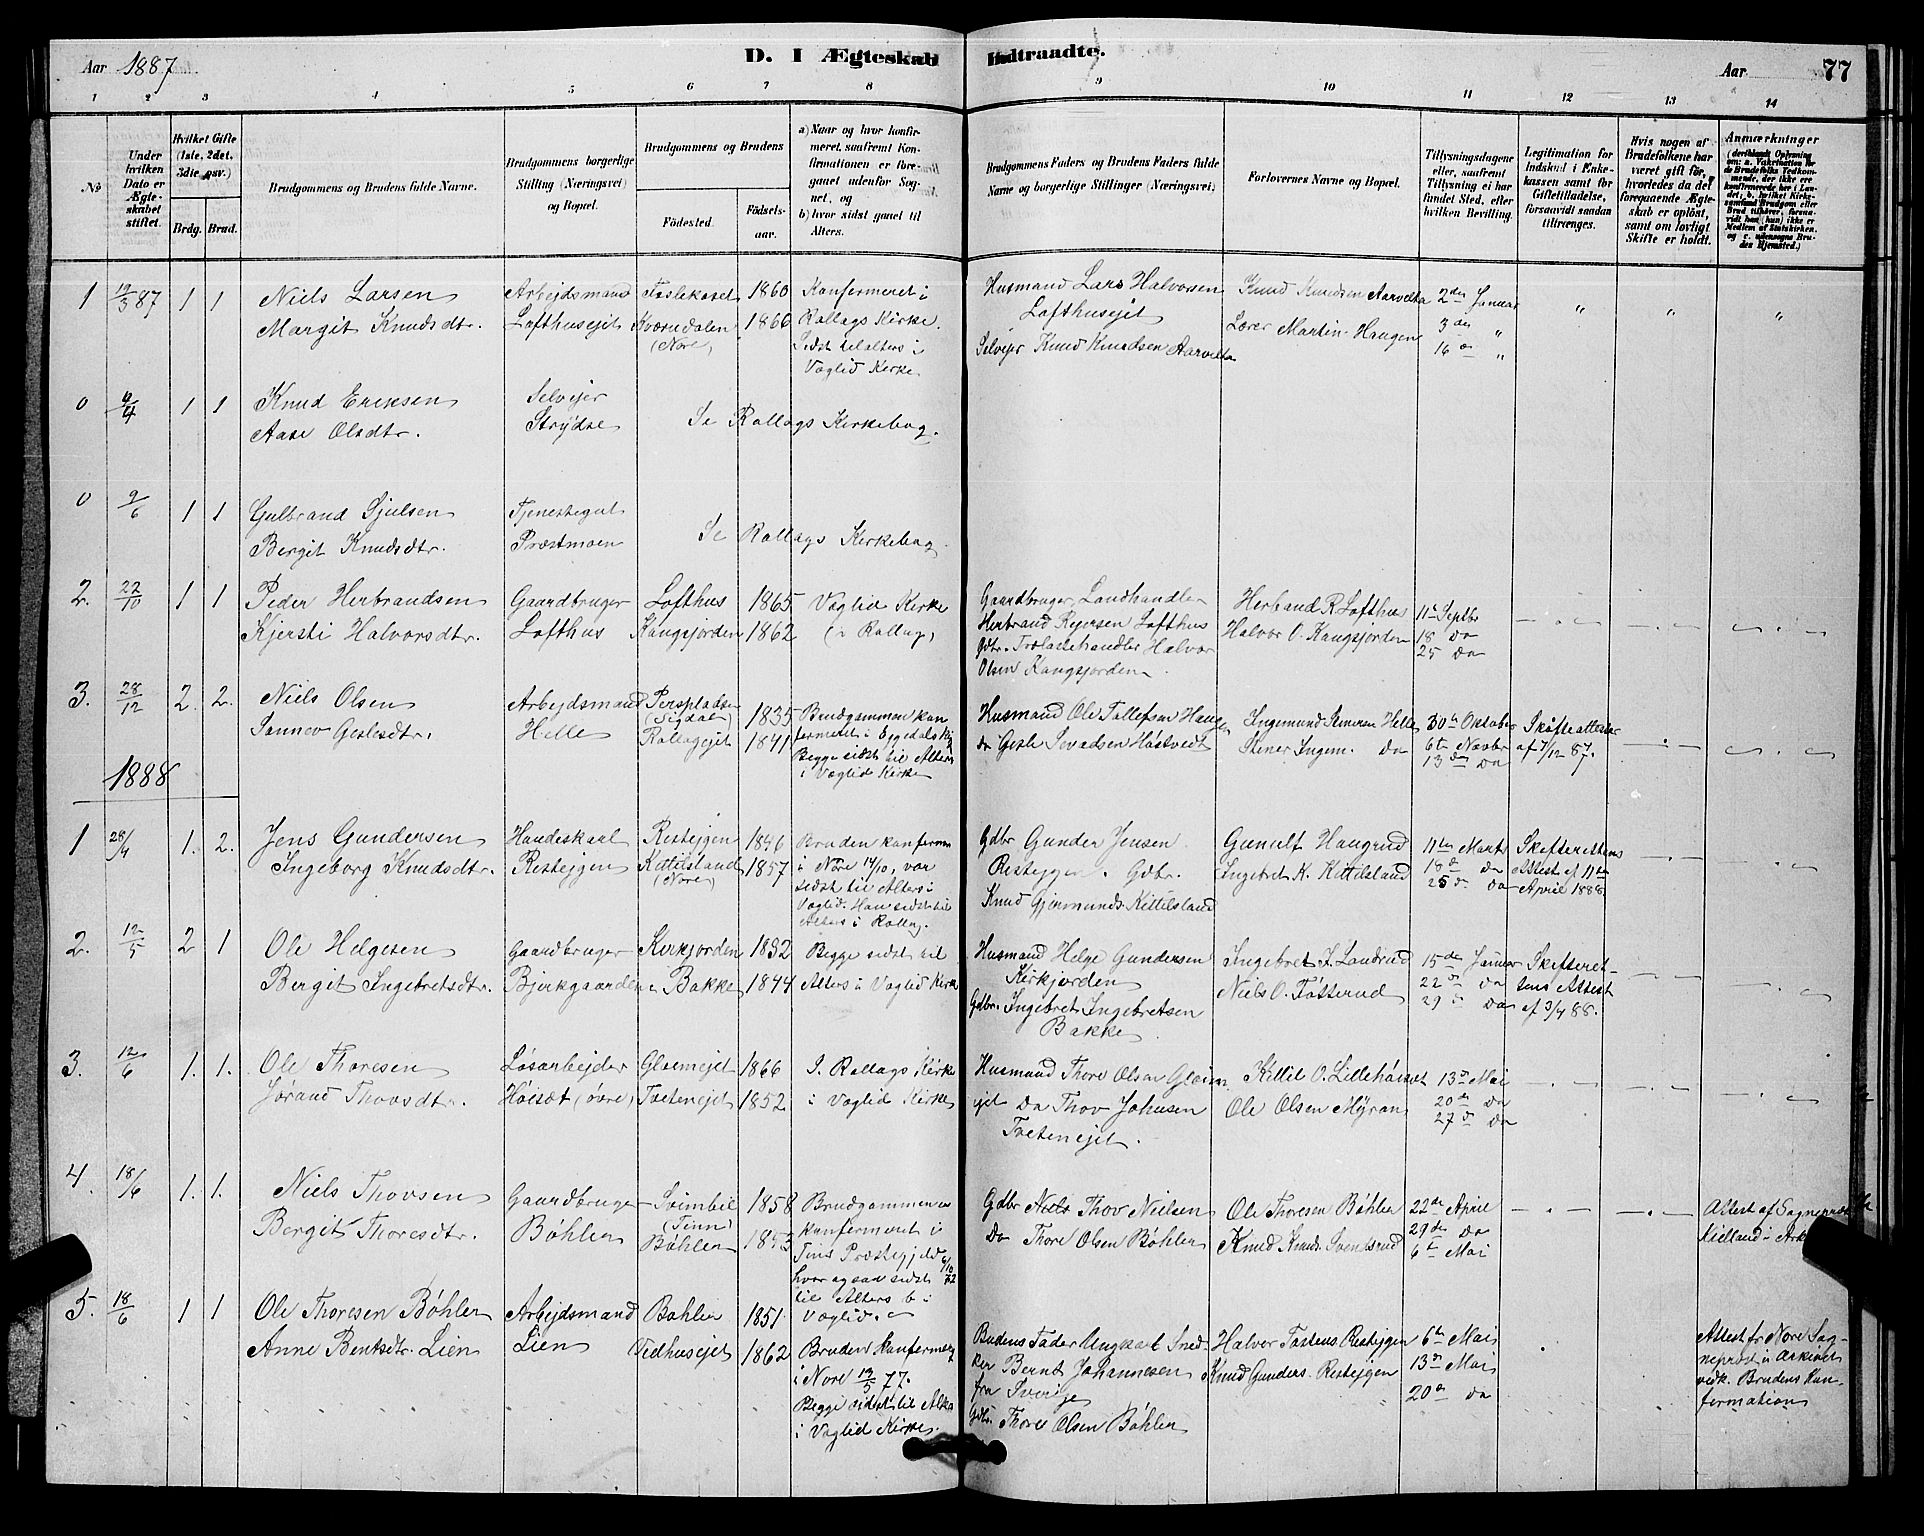 Aar 1887
D. I Ægteskab Indtraadte.
Aar 77
1 2 3 4 5 6 7 8 9 10 11 12 13 14
No
Under hvilken Dato er Ægteskabet stiftet.
Hvilket Gifte (1ste, 2det, 3die osv.)
Brdg. Brud.
Brudgommens og Brudens fulde Navne.
Brudgommens borgerlige Stilling (Næringsvei) og Bopæl.
Brudgommens og Brudens
Fødested. Fødselsaar.
a) Naar og hvor konfirmeret, saafremt Konfirmationen er foregaaet udenfor Sognet, og
b) hvor sidst gaaet til Alters.
Brudgommens Faders og Brudens Faders fulde Navne og borgerlige Stillinger (Næringsvei)
Forlovernes Navne og Bopæl.
Tillysningsdagene eller, saafremt Tillysning ei har fundet Sted, efter hvilken Bevilling.
Legitimation for Indskud i Enkekassen samt for Giftetilladelse, forsaavidt saadan tiltrænges.
Hvis nogen af Brudefolkene har været gift før, hvorledes da det foregaaende Ægteskab er opløst, samt om lovligt Skifte er holdt.
Anmærkninger
1 10/3 87 1 1
Niels Larsen
Margit Knudsdtr.
Arbejdsmand
Lofthusejet
Kværndalen
(Nore)
1860
1866
Konfermeret i
Rollags Kirke.
Sidst til alters i
Væglid Kirke
Husmand Lars Halvorsen
Lofthusejet
Selvejer Knud Knudsen Aarvelta
Knud Knudsen Aarvelta
Lærer Martin Haugen
2den Januar
3die "
16de "
" " "
0 4/4 1 1
Knud Eriksen
Aase Olsdtr.
Selvejer
Strydse
Se Rollags Kirkebog.
0 9/6 1 1
Gulbrand Sjulsen
Bergit Knudsdtr.
Tjenestegut
Præstmoen
Se Rollags Kirkebog.
2. 22/10 1 1
Peder Herbrandsen
Kjersti Halvorsdtr.
Gaardbruger
Lofthus
Lofthus
Kangsjorden
1865
1862
Væglid Kirke
(i Rollag)
Gaardbruger, Landhandler
Herbrand Rejersen Lofthus
Gdbr. Trælasthandler Halvor
Olsen Kangsjorden
Herband R. Lofthus
Halvor O. Kangsjorden
11te Septbr
18 Do
25 Do
3. 28/12 2. 2.
Niels Olsen
Sønnev Geslesdtr.
Arbejdsmand
Helle
Perspladsen
(Sigdal)
Rollagejet
1835
1841
Brudgommen konfermeret i Eggedals K
Begge sidst til Alters
i Væglid Kirke
Husmand Ole Tollefsen Haugen
do Gesle Sevadsen Høstvedt
Ingemund Stenersen Helle
Stener Ingem. Do
30te Oktober
6te Novbr
13de Do
Skifteattester
af 7/12 87.
1888
1 28/4 1. 2.
Jens Gundersen
Ingeborg Knudsdtr.
Handeskarl
Restejgen
Restejgen
Kittilsland
(Nore)
1846
1857
Bruden konfermeret
i Nore 14/10, var
sidst til Alters i
Væglid. Han sidst til
Alters i Rollag.
Gdbr Gunder Jensen
Restejgen. Gdbr.
Knud Gjermunds. Kittilsland
Gunulf Haugrud
Ingebret K. Kittilsland
11te Marts
18de do
25de do
Skifterettens
Attest af 11te
April 1888
2. 12/5 2 1
Ole Helgesen
Bergit Ingebretsdtr.
Gaardbruger
Bjørkgaarden
Kirkjorden
Bakke
1832
1844
Begge sidst til
Alters i Væglid Kirke
Husmand Helge Gundersen
Kirkjorden
Gdbr. Ingebret Ingebretsen
Bakke
Ingebret I. Landrud
Niels O. Fatterud
15de Januar
22de do
29de Do
Skifterettens Attest
af 3/4 88.
3. 12/6 1. 1.
Ole Thoresen
Jørand Thovsdtr.
Løsarbejder
Høisæt (øvre)
Gloemejet
Tvetenejet
1866
1852
I Rollags Kirke
i Væglid Kirke
Husmand Thore Olsen Gloimejet
Do Thov Johnsen
Tvetenejet.
Kittil O. Lillehøiset
Ole Olsen Myran
13de Mai
20de Do
27de Do
4. 18/6 1. 1.
Niels Thovsen
Bergit Thoresdtr.
Gaardbruger
Bøhlen
Svimbil
(Tinn)
Bøhlen
1858
1853
Brudgommen
konfermeret i
Tins Præstegjeld 6/10 72
hvor ogsaa sidst
til Alters b i
Væglid.
Gdbr Niels Thov Nielsen
Do Thore Olsen Bøhlen
Ole Thoresen Bøhlen
Knud Knuds. Sventsrud
22de April
29de Do
6te Mai
Attest af Sognepræst
Kielland i Ark
5. 18/6 1 1
Ole Thoresen Bøhlen
Anne Berntsdtr. Lien
Arbejdsmand
Lien
Bøhlen
Vedhusejet
1851
1862
Bruden konfermeret
i Nore 13/5 77.
Begge sidst til Alters
i Væglid Kirke.
Brudens Fader Ungkarl Snedker Bernt Johannesen
fra Sverige
Gdbr. Thore Olsen Bøhlen
Halvor Tostens. Restejgen
Knud Gunders. Restejgen
6te Mai
13de Mai
20de do
Attest fr Nore Sogneprest i Arkivet
vedk. Brudens Konfermation